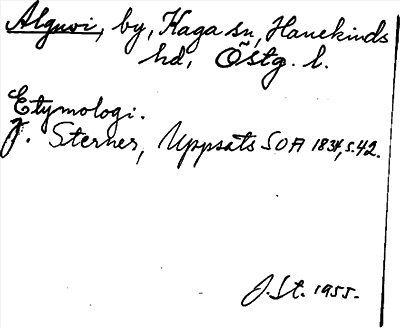 Alguvi, by, Kaga sn, Hanekinds
hd, Östg. l.
Etymologi.
J. Sterner, Uppsats SOA 1834, s. 42.
J. St. 1955.